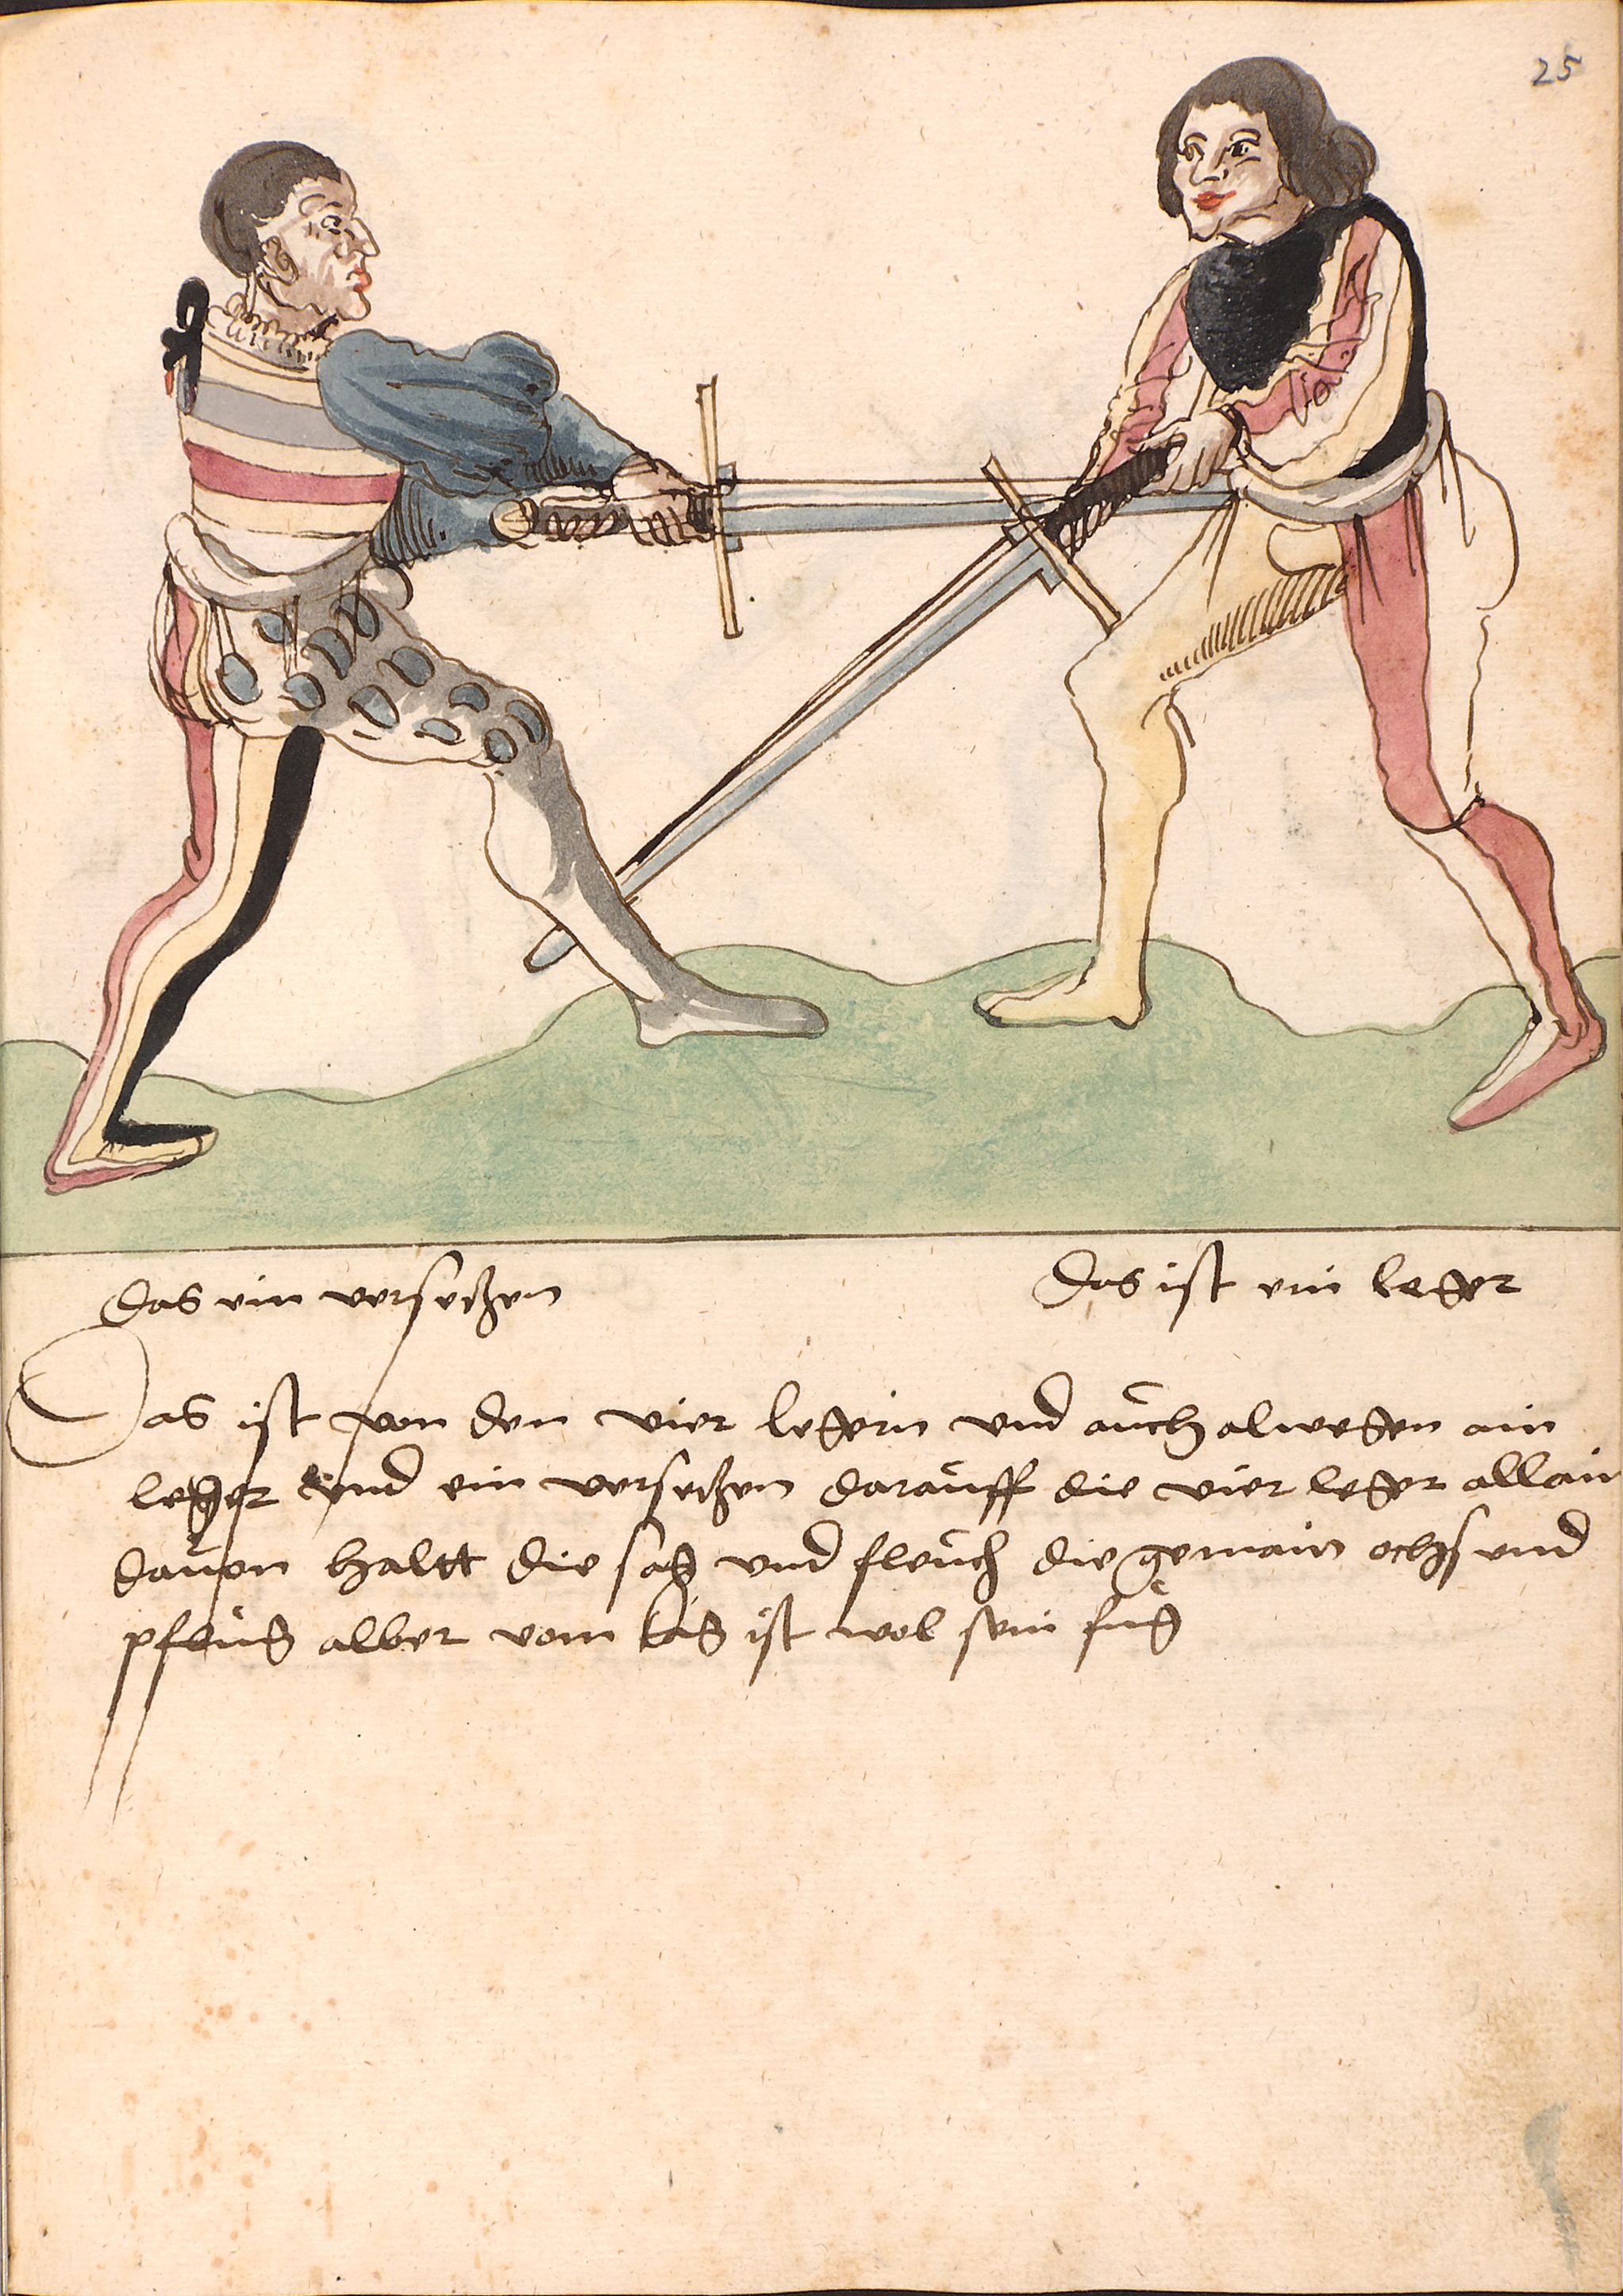 25
Das ein versetzen
Das ist ein leger
Das ist von den vier legern und auch alwegen ain
leger und ein versetzen darauff die vier leger allain
davon haltt die sag und fleuch die gemain ochs und
pflug alber vom tag ist wol sein fug